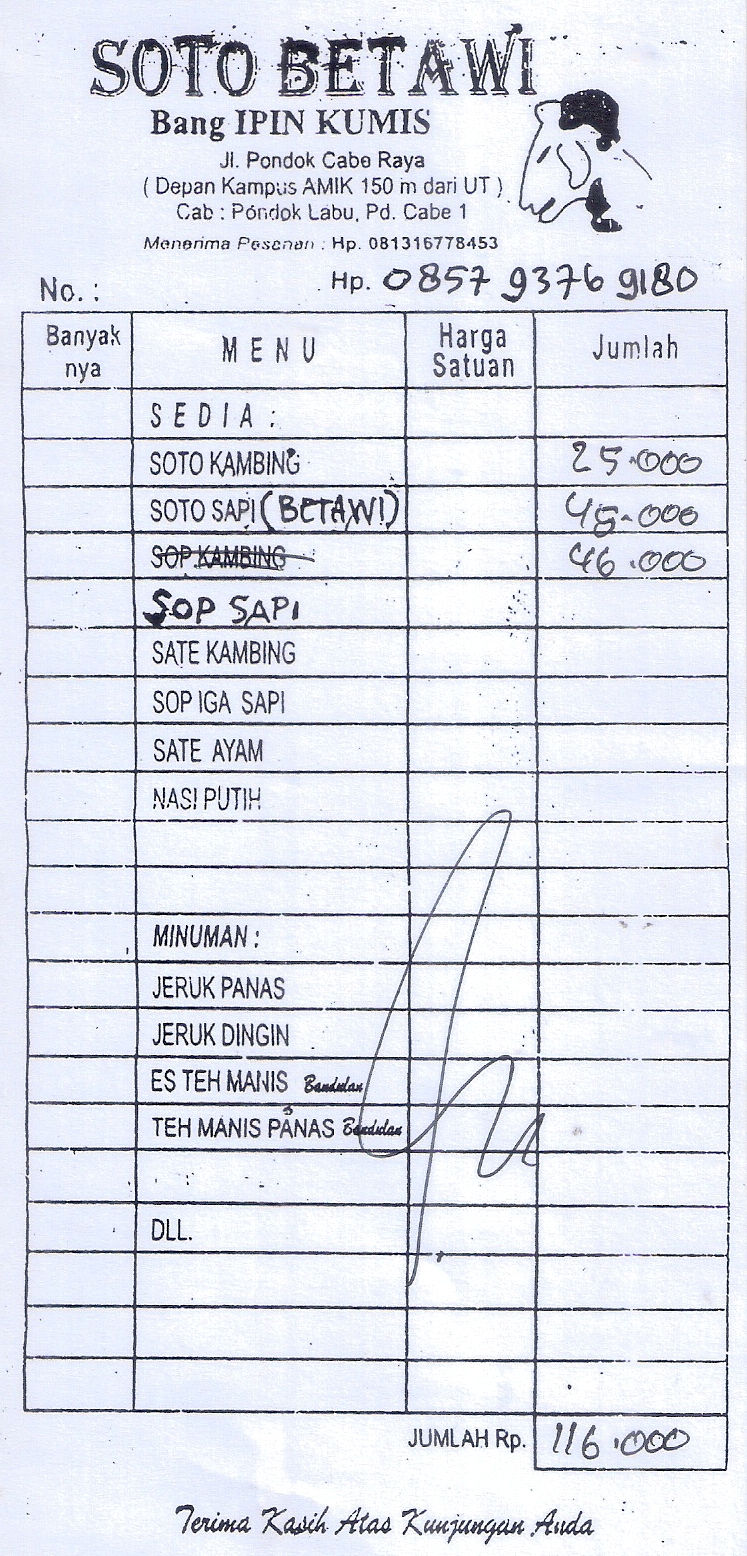 SOTO BETAWI
Bang IPIN KUMIS
Jl. Pondok Cabe Raya
( Depan Kampus AMIK 150 m dari UT )
Cab : Pondok Labu, Pd. Cabe 1
Menerima Pesanan : Hp. 081316778453
No. : Hp. 0857 9376 9180
Banyak nya MENU Harga Satuan Jumlah
SEDIA :
SOTO KAMBING 25.000
SOTO SAPI (BETAWI) 45.000
SOP KAMBING 46.000
SOP SAPI
SATE KAMBING
SOP IGA SAPI
SATE AYAM
NASI PUTIH
MINUMAN :
JERUK PANAS
JERUK DINGIN
ES TEH MANIS Bandulan
TEH MANIS PANAS Bandulan
DLL.
JUMLAH Rp. 116.000
Terima Kasih Atas Kunjungan Anda